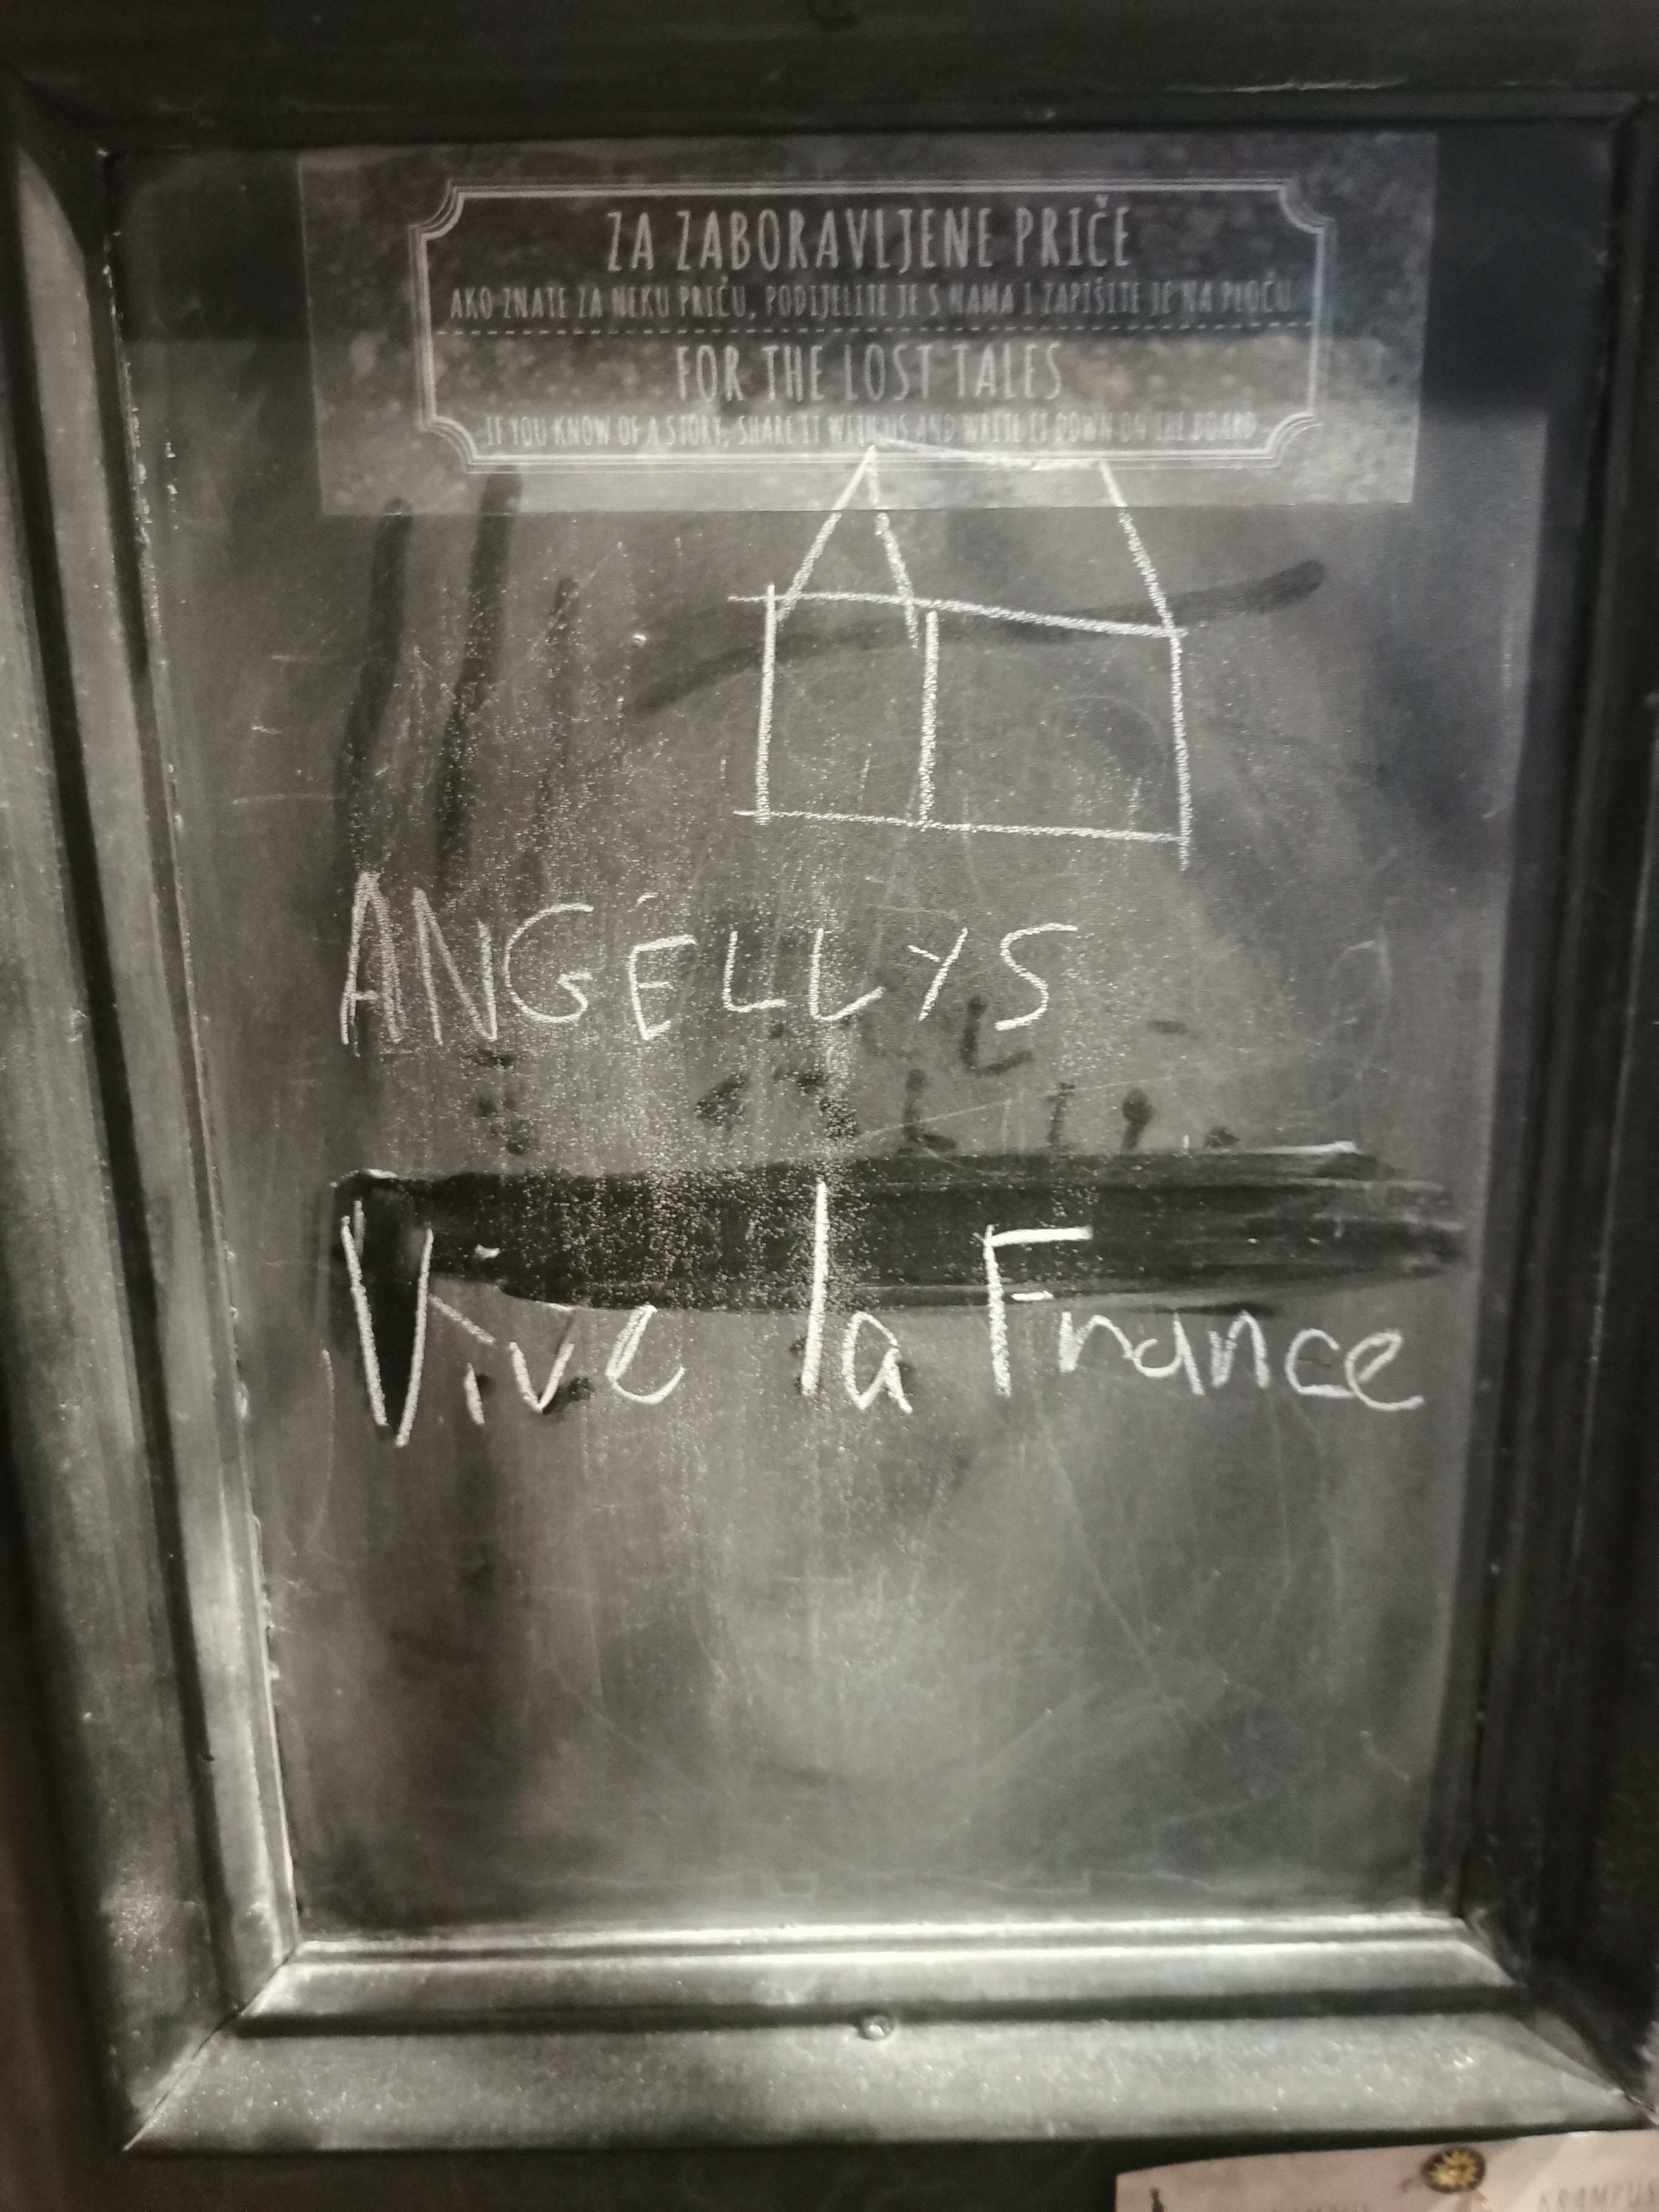 ZA ZABORAVLJENE PRIČE
AKO ZNATE ZA NEKU PRIČU, PODIJELITE JE S NAMA I ZAPIŠITE JE NA PLOČU
FOR THE LOST TALES
IF YOU KNOW OF A STORY, SHARE IT WITH US AND WRITE IT DOWN ON THE BOARD
ANGÉLLYS
Vive la France
KRAMPUS